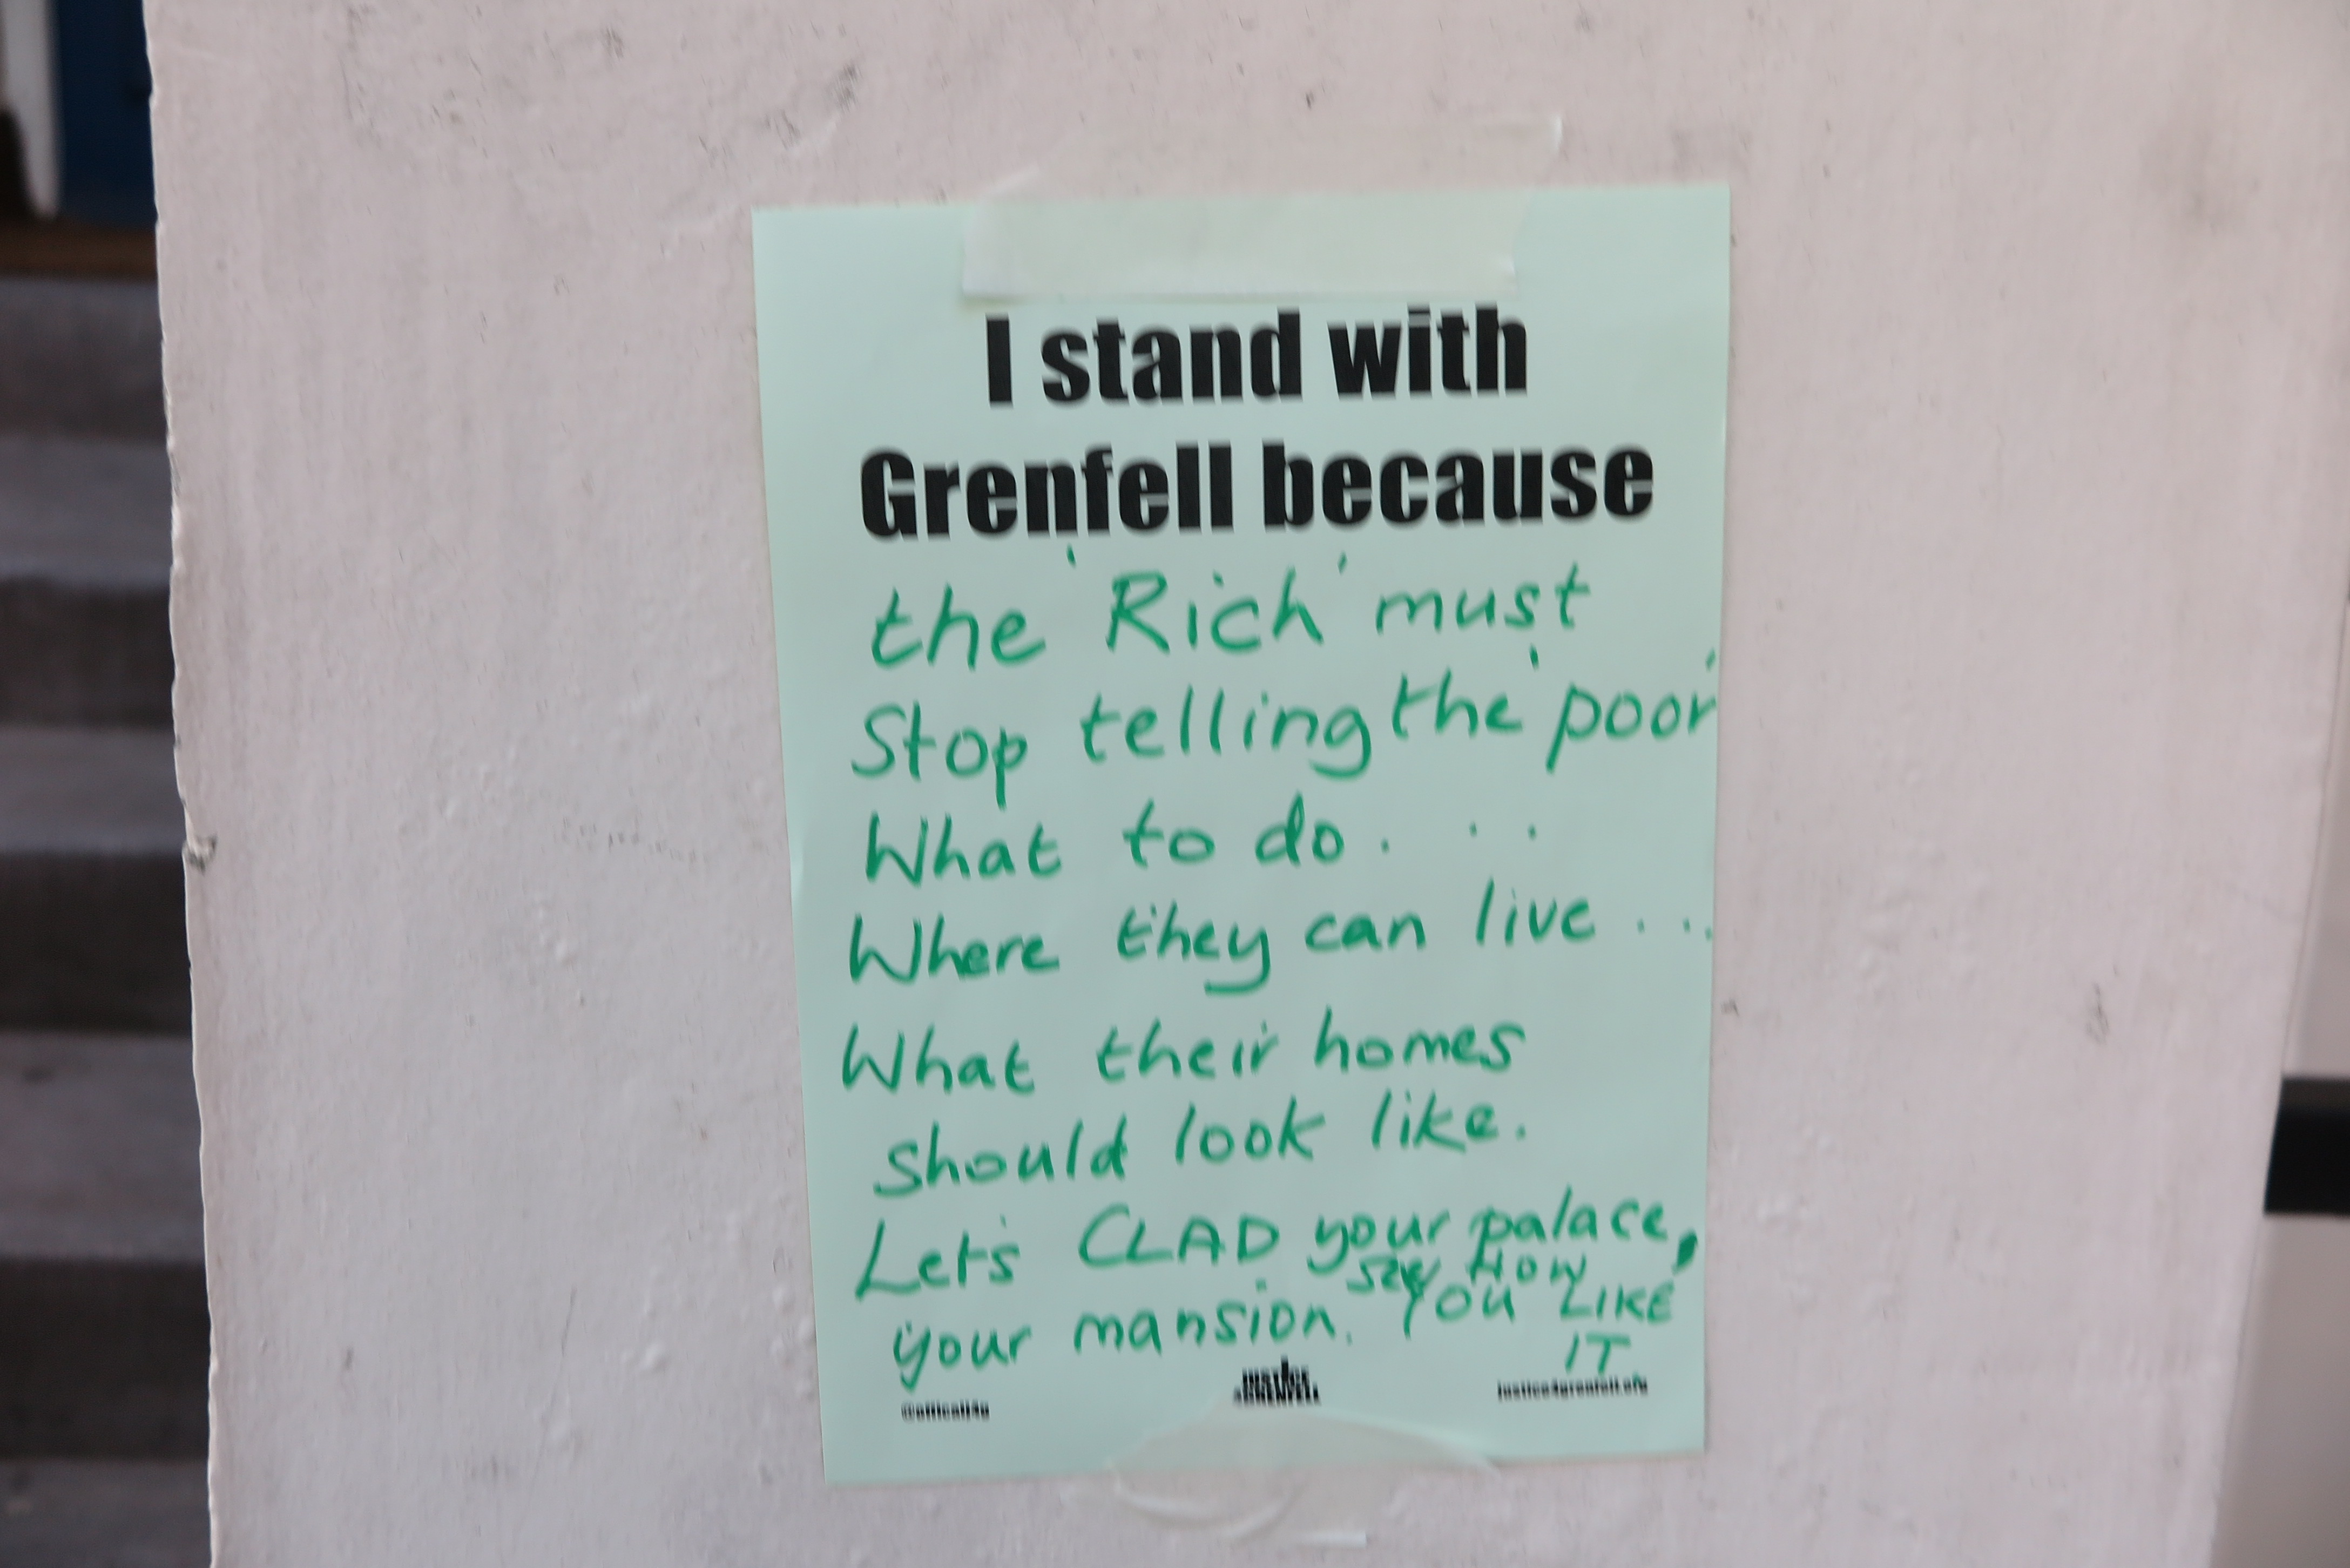 I stand with
Grenfell because
the 'Rich' must
Stop telling the 'poor'
What to do. . .
Where they can live ...
What their homes
should look like.
Let's CLAD your palace,
your mansion. SEE HOW
YOU LIKE
IT.
@officialj4g
JUSTICE
4GRENFELL
justice4grenfell.org